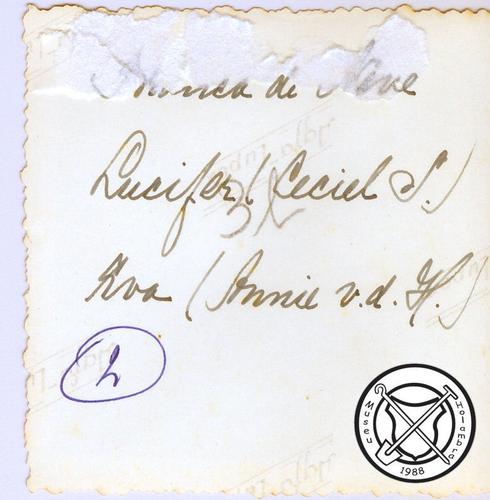 Branca de Neve
Lucifer (Ceciel S.)
Eva (Annie v.d. H.)
2
Museu Holambra
1988